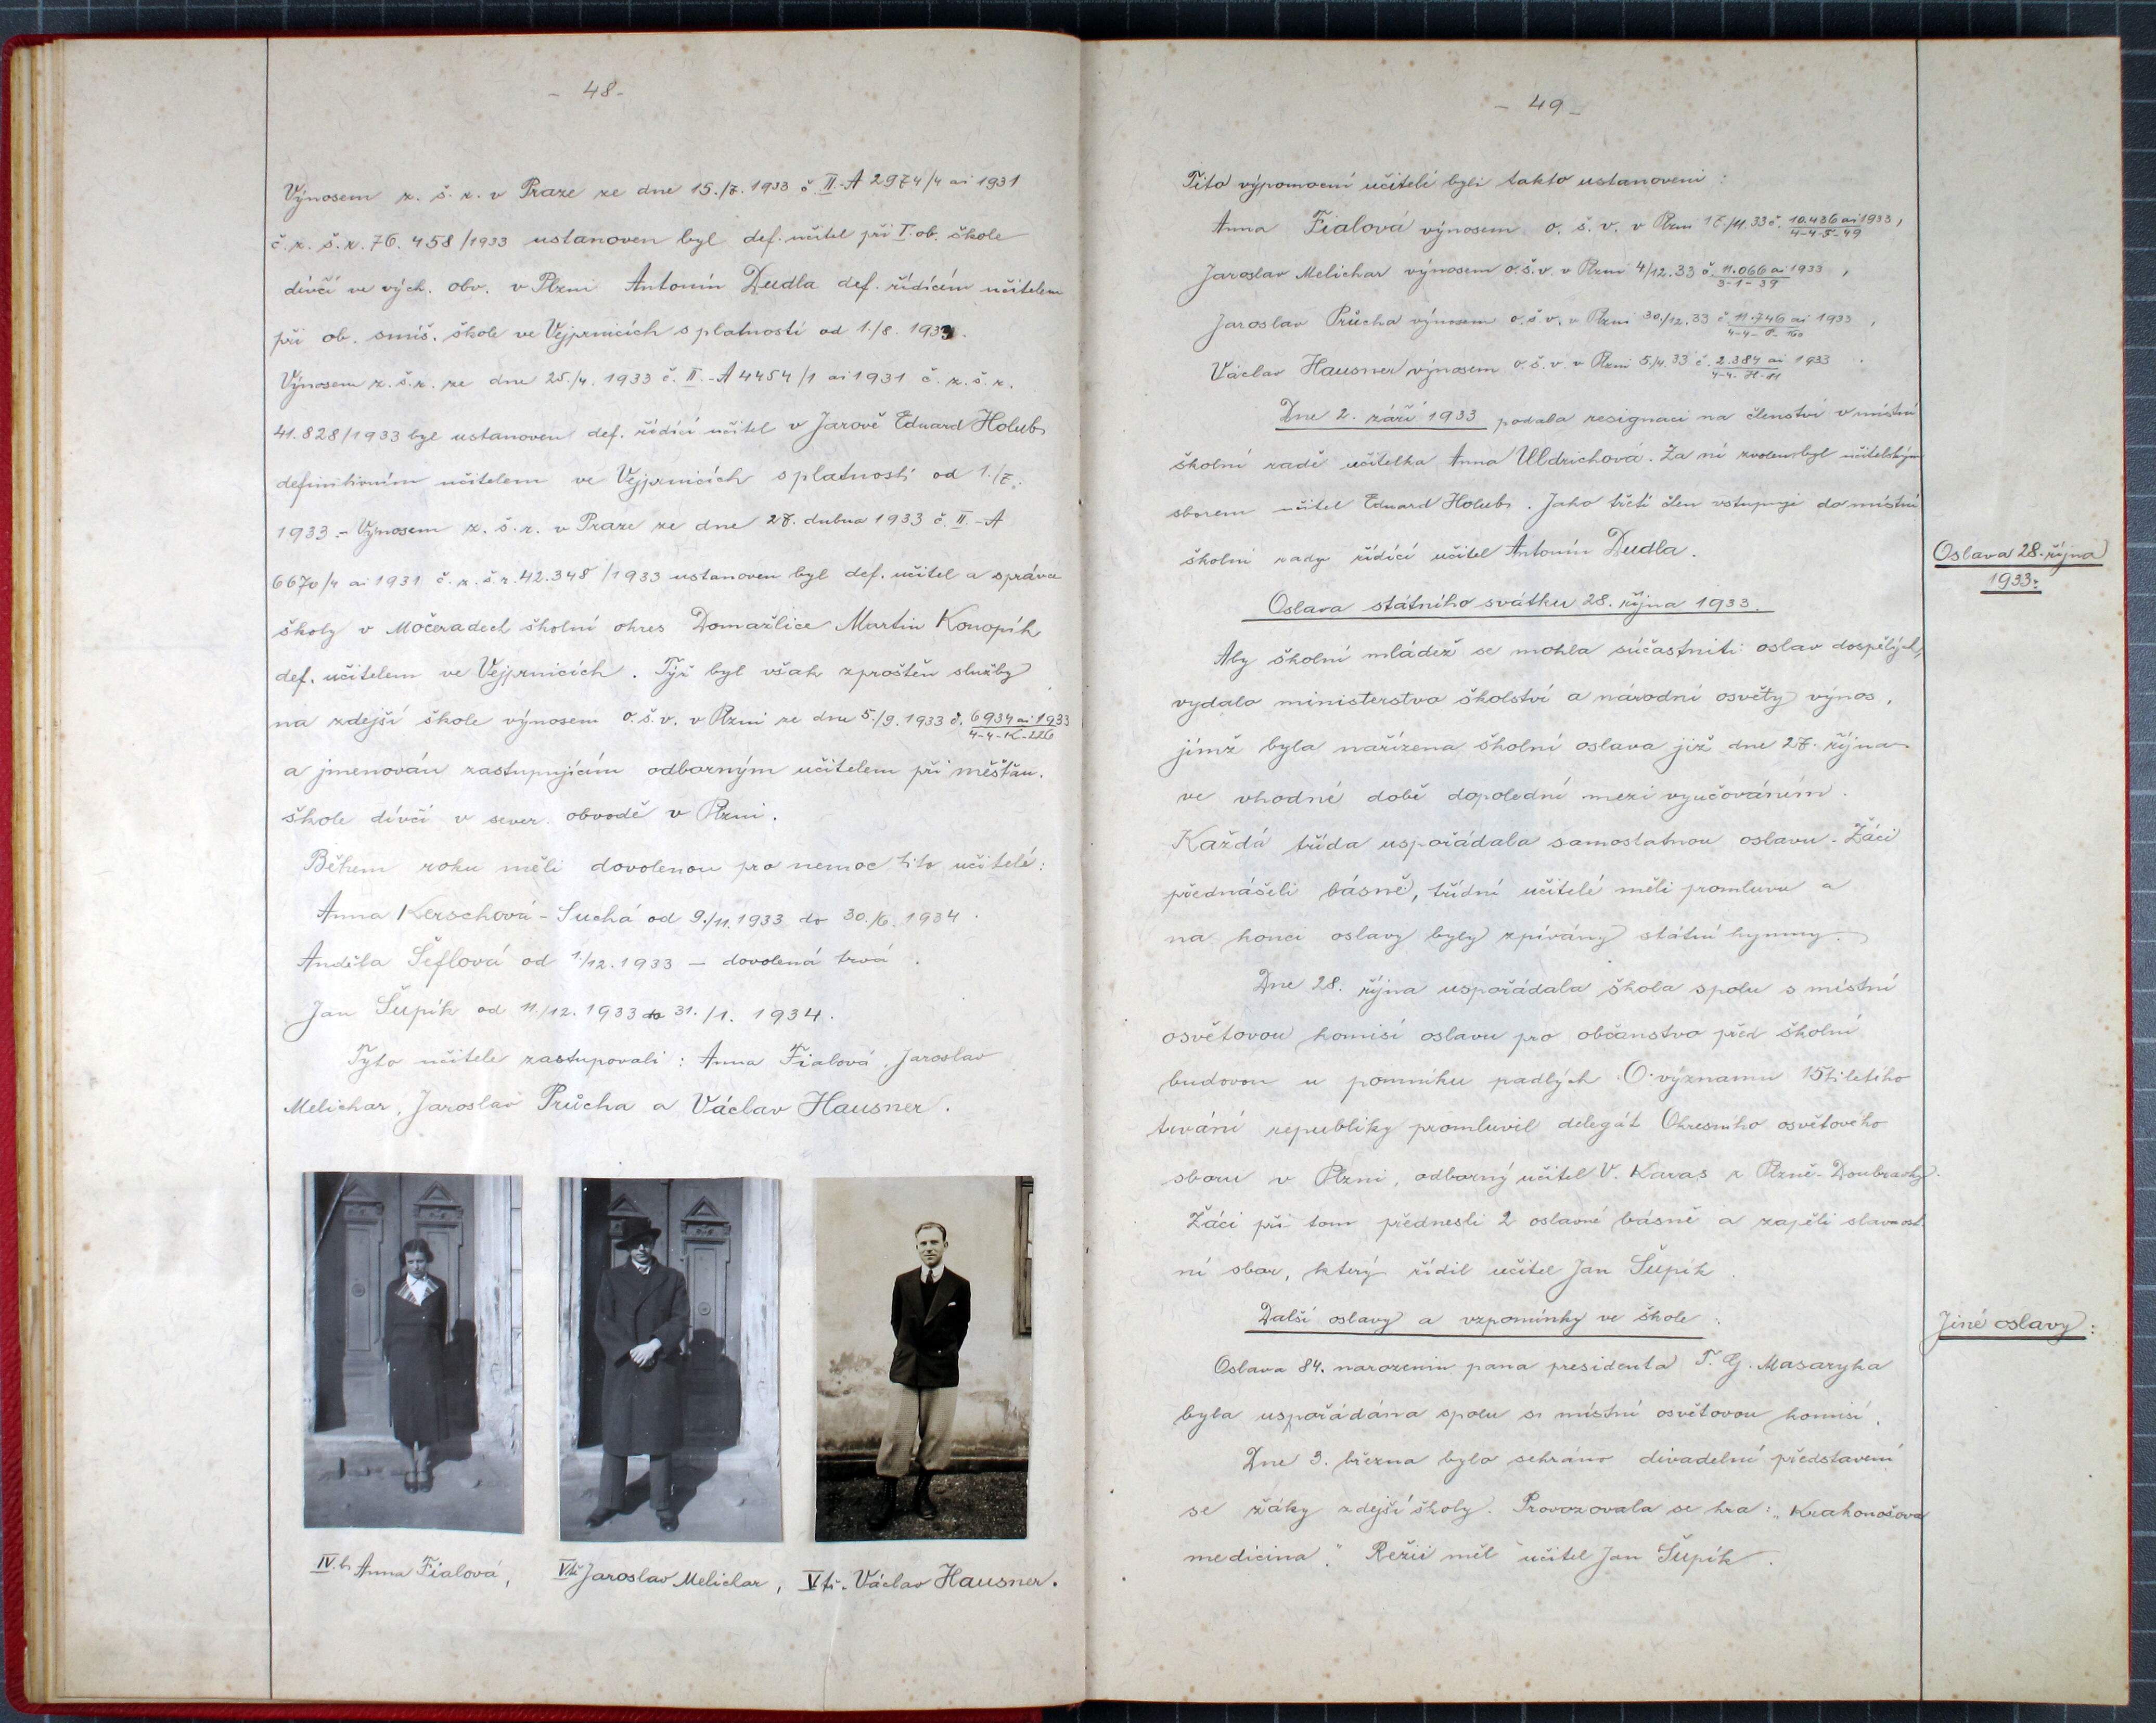 - 48 -
Výnosem z. š. r. v Praze ze dne 15./7. 1933 č. II.-A 2974/4 ai 1931
č. z. š. r. 76.458/1933 ustanoven byl def. učitel při I. ob. škole
dívčí ve vých. obv. v Plzni Antonín Dudla def. řídícím učitelem
při ob. smíš. škole ve Vejprnicích s platností od 1./8. 1933.
Výnosem z. š. r. ze dne 25./4. 1933 č. II.-A 4454/1 ai 1931 č. z. š. r.
41.828/1933 byl ustanoven def. řídící učitel v Jarově Eduard Holub
definitivním učitelem ve Vejprnicích s platností od 1./5.
1933 - Výnosem z. š. r. v Praze ze dne 27. dubna 1933 č. II.-A
6670/4 ai 1931 č. z. š. r. 42.348/1933 ustanoven byl def. učitel a správce
školy v Močeradech školní okres Domažlice Martin Konopík
def. učitelem ve Vejprnicích. Týž byl však zproštěn služby
na zdejší škole výnosem o. š. v. v Plzni ze dne 5./9. 1933 č. 6934 ai 1933
4-4-K-226
a jmenován zastupujícím odborným učitelem při měšťan.
škole dívčí v sever. obvodě v Plzni.
Během roku měli dovolenou pro nemoc tito učitelé:
Anna Kerschová - Suchá od 9./11. 1933 do 30./6. 1934.
Anděla Šeflová od 1./12. 1933 - dovolená trvá.
Jan Šupík od 11./12. 1933 do 31./1. 1934.
Tyto učitele zastupovali: Anna Fialová, Jaroslav
Melichar, Jaroslav Průcha a Václav Hausner.
IV.b Anna Fialová,
V.tř. Jaroslav Melichar,
V.tř. Václav Hausner.
- 49 -
Tito výpomocní učitelé byli takto ustanoveni:
Anna Fialová výnosem o. š. v. v Plzni 17/11. 33 č. 10.436 ai 1933,
4-4-5-49
Jaroslav Melichar výnosem o. š. v. v Plzni 4/12. 33 č. 11.066 ai 1933,
3-1-39
Jaroslav Průcha výnosem o. š. v. v Plzni 30./12. 33 č. 11.746 ai 1933,
4-4-P-
Václav Hausner výnosem o. š. v. v Plzni 5./4. 33 č. 2.384 ai 1933.
4-4-H-11
Dne 2. září 1933 podala resignaci na členství v místní
školní radě učitelka Anna Uldrichová. Za ní zvolen byl učitelským
sborem učitel Eduard Holub. Jako třetí člen vstupuje do místní
školní rady řídící učitel Antonín Dudla.
Oslava 28. října
1933:
Oslava státního svátku 28. října 1933.
Aby školní mládež se mohla súčastniti oslav dospělých,
vydalo ministerstvo školství a národní osvěty výnos,
jímž byla nařízena školní oslava již dne 27. října
ve vhodné době dopolední mezi vyučováním.
Každá třída uspořádala samostatnou oslavu. Žáci
přednášeli básně, třídní učitelé měli promluvu a
na konci oslavy byly zpívány státní hymny.
Dne 28. října uspořádala škola spolu s místní
osvětovou komisí oslavu pro občanstvo před školní
budovou u pomníku padlých. O významu 15tiletého
trvání republiky promluvil delegát Okresního osvětového
sboru v Plzni, odborný učitel V. Karas z Plzně-Doubravky.
Žáci při tom přednesli 2 oslavné básně a zapěli slavnost-
ní sbor, který řídil učitel Jan Šupík.
Další oslavy a vzpomínky ve škole:
Jiné oslavy:
Oslava 84. narozenin pana presidenta T. G. Masaryka
byla uspořádána spolu s místní osvětovou komisí.
Dne 3. března bylo sehráno divadelní představení
se žáky zdejší školy. Provozovala se hra: „Krakonošova
medicina." Režii měl učitel Jan Šupík.